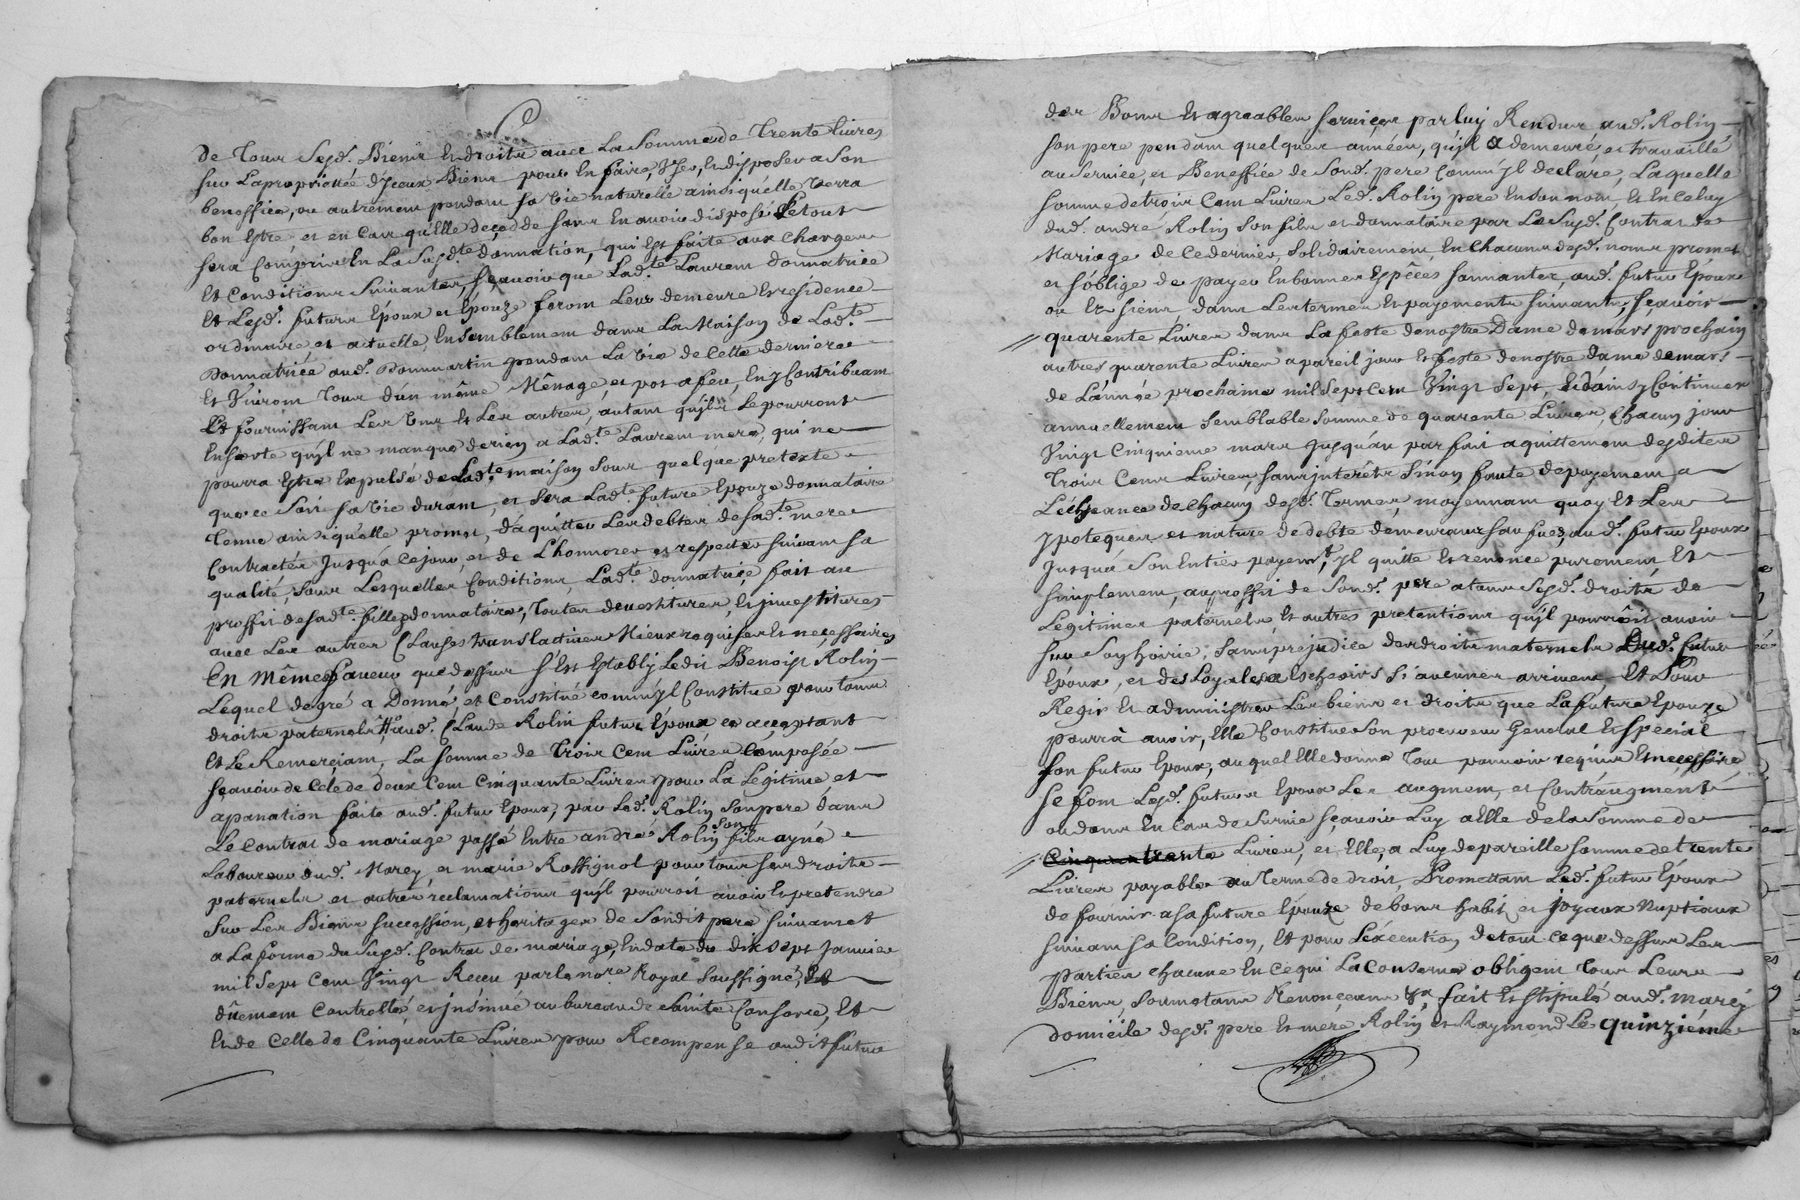 de Tous Sesd. Biens Et droits avec La Somme de Trente Livres
sur La proprietté d'Jceux Biens pour En faire, Vser, Et disposer a Son
benoffice, ou autrement pendant sa vie naturelle ainsi quélle verra
bon Estre, et en Cas qu'Elle décedde sans En avoir disposé Le tout
sera Compris En La Susd.te donnation, qui Est faite aux Charges
Et Conditions Suivantes, sçavoir que Lad.te Laurent donnatrice
Et Lesd. futurs Epoux et Epouze feront Leur demeure Et residence
ordinaire et actuelle, Ensemblement dans La Maison de Lad.te
Donnatrice aud. Dommartin pendant La vie de Cette derniere
Et Vivront Tous d'un même Ménage, et pot a feu, En y Contribuant
Et fournissant Les Uns Et Les autres, autant quyls Le pourront
Ensorte quyl ne manque de rien a Lad.te Laurent mere, qui ne
pourra Estre Expulsé de Lad.te maison Sous quelque pretexte
que ce Soit sa vie durant, et sera Lad.te future Epouze donnataire
Tenue ainsi quélle promet, d'aquitter Les debtes de sad.te mere
Contractés Jusqu'a Cejour, et de L'honnorer et respecter suivant sa
qualité, Sous Lesquelles Conditions, Lad.te donnatrice fait au
proffit de sad.te fille donnataire, Toutes devestitures, Et jnvestitures
avec Les autres Clauses translatives Mieux requises Et necessaires
En Même faveur que dessus S'Est Estably Ledit Benoist Rolin
Lequel de gré a Donné, et Constitué comm'yl Constitue pour tous
droits paternels aud. Claude Rolin futur Epoux et acceptant
Et Le Remerçiant, La somme de Trois Cent Livres Composée
sçavoir de Cele de deux Cent Cinquante Livres pour La Legitime et
apanation faite aud. futur Epoux, par Led. Rolin Son pere dans
Le Contrat de mariage passé Entre andré Rolin son fils ayné
Laboureur dud. Marcy, et marie Rossignol pour tous ses droits
paternels et autres reclamations quyl pourroit avoir Et pretendre
Sur Les Biens succession, et heritages de Sondit pere suivant
a La forme du Susd. Contrat de mariage, En date du dix sept Janvier
mil Sept Cent Vingt Reçeu par Le no.re Royal Soussigné, Et
dûement Controllé, et Jnsinué au bureau de Sainte Consorce, Et
Et de Celle de Cinquante Livres pour Recompense audit futur
des Bons Et agreables services par luy Rendus aud. Rolin
son pere pendant quelques années, quyl a demeuré et travaillé
au Service, et Beneffice de Sond. pere Comm'yl declare, Laquelle
somme de trois Cent Livres Led. Rolin pere En son nom, Et En Celuy
dud. andré Rolin Son fils et donnataire par Le Susd. Contrat de
Mariage de Ce dernier, Solidairement, En Chacuns desd. noms promet
et s'oblige de payer En bonnes Espéces sonnantes, aud. futur Epoux
ou Es siens, dans Les termes Et payements suivants, sçavoir
quarente Livres dans La feste de nostre Dame de mars prochain
autres quarente Livres a pareil jour Et feste de nostre dame de mars
de L'année prochaine mil Sept Cent Vingt Sept, Et d'ainsy Continuer
annuellement Semblable Somme de quarente Livres, Chacun jour
Vingt Cinquieme mars Jusqu'au parfait aquittement desdites
Trois Cents Livres sans jnterêts Sinon faute de payement a
L'écheance de Chacun desd. Termes, moyennant quoy Et Les
ypoteques et nature de debte demeurant saufves aud. futur Epoux
Jusqu'a Son Entier payem.t, Jl quitte Et renonce purement Et
simplement, au proffit de Sond. pere a tous Sesd. droits de
Legitimes paternels, Et autres pretentions qu'yl pourroit avoir
sur Son hoirie, Sans prejudice des droits maternels Dud. futur
Epoux, et des Loyales Escheoirs Si aucunes arrivent, Et Pour
Regir Et administrer Les biens et droits que La future Epouze
pourrà avoir, Elle Constitue Son procureur General Et Special
son futur Epoux, auquel Elle donne Tout pouvoir requis Et necessaire
Se font Lesd. futurs Epoux Les augment, et Contraugment
ou dons En Cas de Survie sçavoir Luy a Elle de la Somme de
Cinquante trente Livres, et Elle, a Luy de pareille Somme de trente
Livres payables au Terme de droit, Promettant Led. futur Epoux
de fournir a sa future Epouze de bons habits et joyaux Nuptiaux
suivant sa Condition, Et pour L'execution de tout ce que dessus Les
parties chacune En ce qui La Conserne obligent Tous Leurs
Biens, Soumetans Renonçeans &a, fait Et stipulé aud. Marcy
domicile desd. pere Et mere Rolin et Raymond Le quinziéme